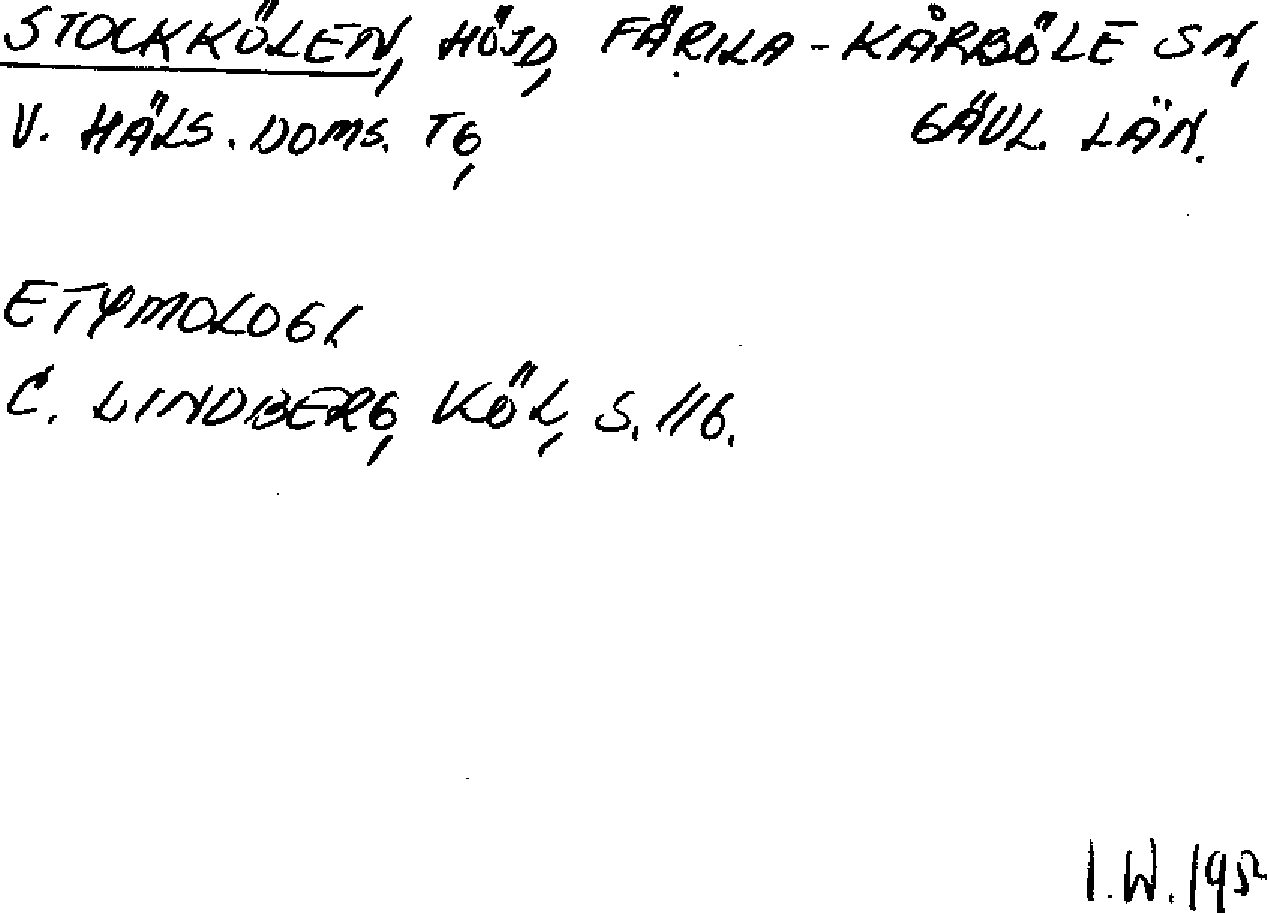 STOCKKÖLEN, HÖJD, FÄRILA-KÅRBÖLE SN,
V. HÄLS. DOMS. TG, GÄVL. LÄN.
ETYMOLOGI
C. LINDBERG, KÖL, S. 116.
I.W. 195